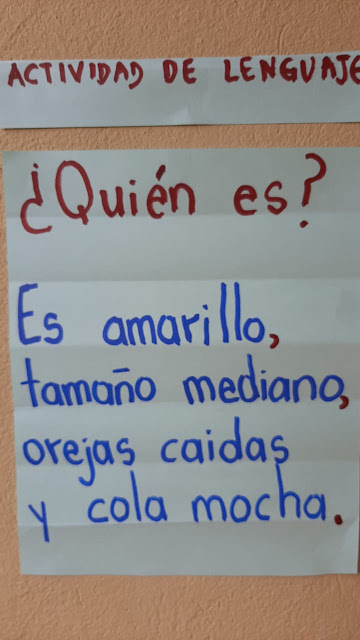 ACTIVIDAD DE LENGUAJE
¿Quién es?
Es amarillo,
tamaño mediano,
orejas caidas
y cola mocha.